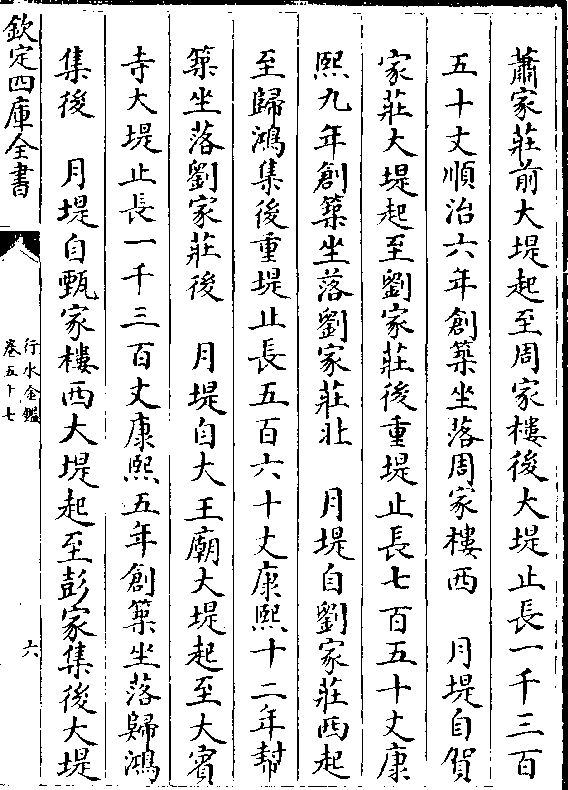 蕭家莊前大堤起至周家樓後大堤止長一千三百
五十丈順治六年創築坐落周家樓西　月堤自賀
家莊大堤起至劉家莊後重堤止長七百五十丈康
熙九年創築坐落劉家莊北　月堤自劉家莊西起
至歸鴻集後重堤止長五百六十丈康熙十二年幇
築坐落劉家莊後　月堤自大王廟大堤起至大賓
寺大堤止長一千三百丈康熙五年創築坐落歸鴻
集後　月堤自甄家樓西大堤起至彭家集後大堤
欽定四庫全書
行水金鑑
卷五十七
六